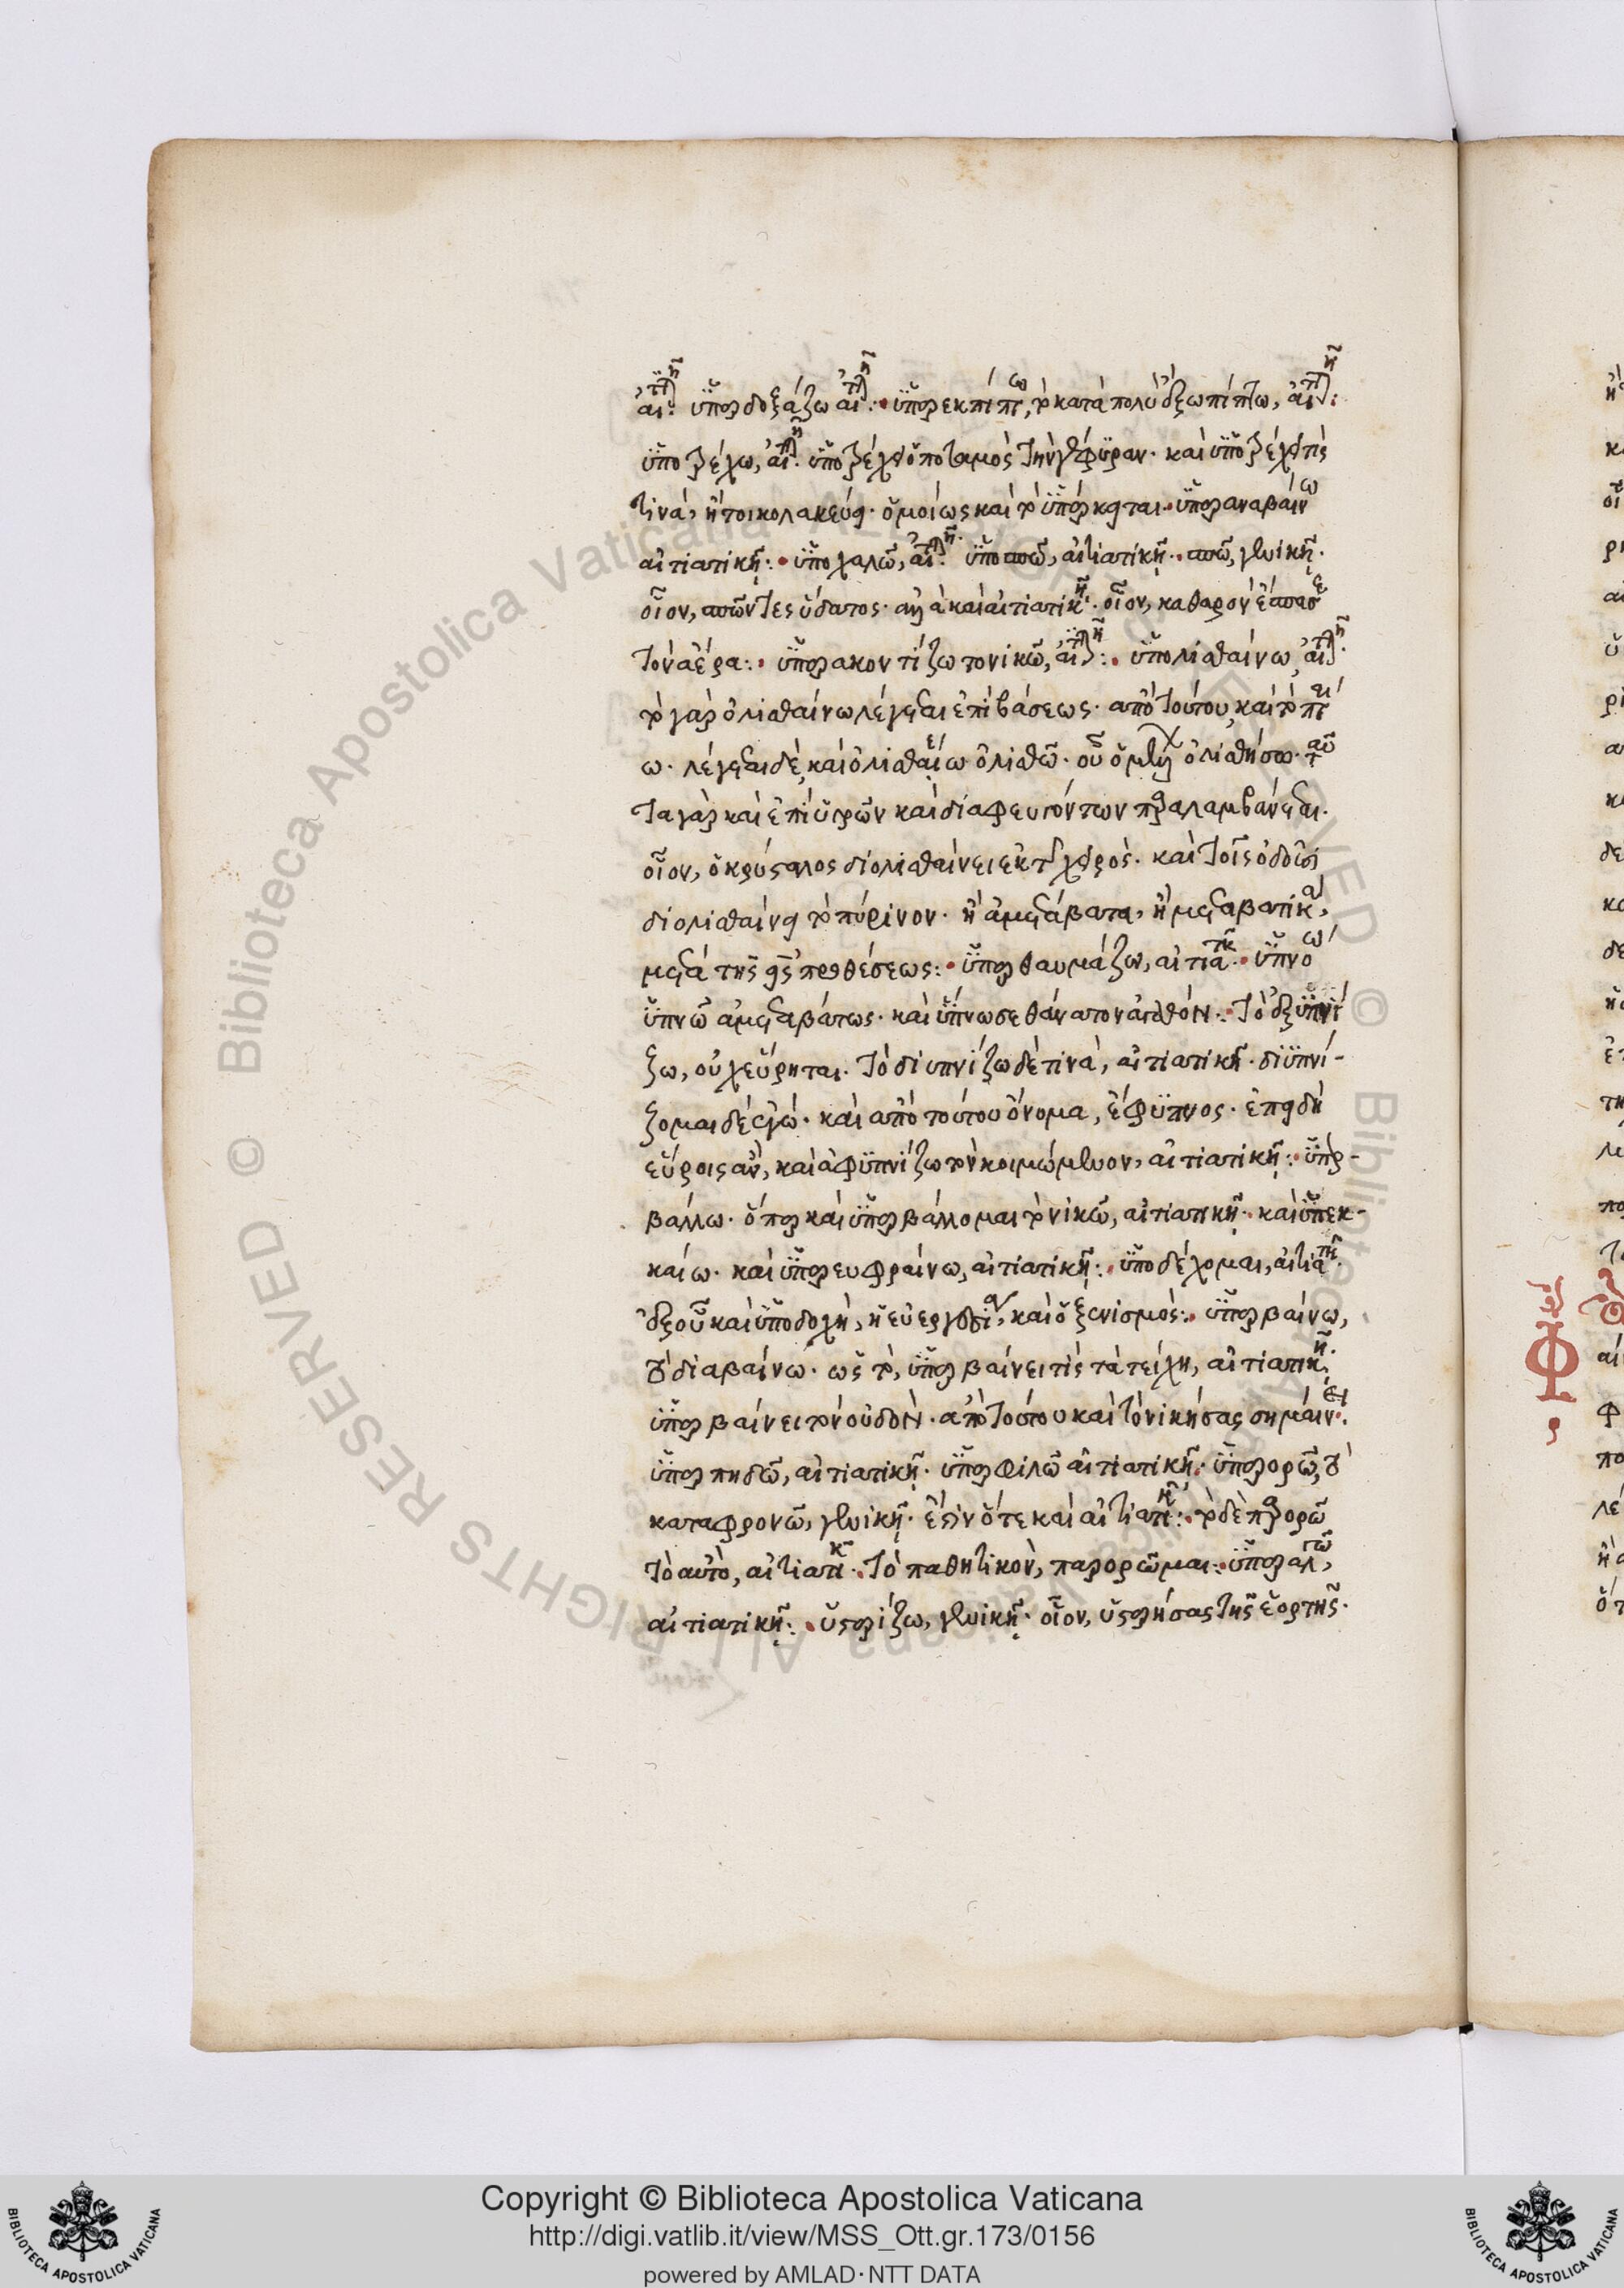 αἰτ: ὑπερδοξάζω αἰτ: ὑπερεκπίπτω, τὸ κατὰ πολὺ ἔξω πίπτω, αἰτ:
ὑποτρέχω, αἰτ. ὑποτρέχει ὁ ποταμὸς τὴν γέφυραν. καὶ ὑποτρέχει τίς
τινά, ἤτοι κολακεύει. ὁμοίως καὶ τὸ ὑπέρκειται. ὑπεραναβαίνω
αἰτιατικῇ: ὑποχαλῶ, αἰτ. αἰτιατικῇ. γενικῇ.
οἷον, ὕδατος. ἀλλὰ καὶ αἰτιατικῇ. οἷον, καθαρὸν
τὸν ἀέρα: ὑπερακοντίζω τὸ νικῶ, αἰτ: ὑπολισθαίνω, αἰτ.
τὸ γὰρ ὀλισθαίνω λέγεται ἐπὶ βάσεως. ἀπὸ τούτου καὶ τὸ
ω. λέγεται δὲ καὶ ὀλισθέω ὀλισθῶ. οὗ ὁ μέλλων ὀλισθήσω.
τα γὰρ καὶ ἐπὶ ὑγρῶν καὶ διαφευγόντων παραλαμβάνεται.
οἷον, ὁ κρύσταλος διολισθαίνει ἐκ τῆς χειρός. καὶ τοῖς ὀδοῦσι
διολισθαίνει τὸ πύρινον. ἢ ἀμετάβατα, ἢ μεταβατικά,
μετὰ τῆς προθέσεως: ὑπερθαυμάζω, αἰτιατ. ὑπνόω
ὑπνῶ ἀμεταβάτως. καὶ ὕπνωσε θάνατον ἀγαθόν. τὸ ἐξυπνί
ζω, οὐχ εὕρηται. τὸ διυπνίζω δέ τινα, αἰτιατικῇ. διυπνί-
ζομαι δὲ ἐγώ. καὶ ἀπὸ τούτου ὄνομα, ἔφυπνος. ἐπειδὴ
εὕροις ἂν, καὶ ἀφυπνίζω τὸν κοιμώμενον, αἰτιατικῇ: ὑπερ-
βάλλω. ὅπερ καὶ ὑπερβάλλομαι τὸ νικῶ, αἰτιατικῇ. καὶ ὑπεκ-
καίω. καὶ ὑπερευφραίνω, αἰτιατικῇ: ὑποδέχομαι, αἰτιατ.
ἐξ οὗ καὶ ὑποδοχὴ, ἡ εὐεργεσία, καὶ ὁ ξενισμός: ὑπερβαίνω,
τὸ διαβαίνω. ὡς τὸ, ὑπερβαίνει τίς τὰ τείχη, αἰτιατικῇ.
ὑπερβαίνει τὸν οὐδόν. ἀπὸ τούτου καὶ τὸ νικήσας σημαίνει.
ὑπερπηδῶ, αἰτιατικῇ. ὑπερφιλῶ αἰτιατικῇ. ὑπερορῶ, τὸ
καταφρονῶ, γενικῇ. ἔστιν ὅτε καὶ αἰτιατικῇ: τὸ δὲ παρορῶ
τὸ αὐτὸ, αἰτιατικ. τὸ παθητικὸν, παρορῶμαι: ὑπεραγαπῶ,
αἰτιατικῇ: ὑστερίζω, γενικῇ. οἷον, ὑστερήσας τῆς ἑορτῆς.
Copyright © Biblioteca Apostolica Vaticana
http://digi.vatlib.it/view/MSS_Ott.gr.173/0156
powered by AMLAD·NTT DATA